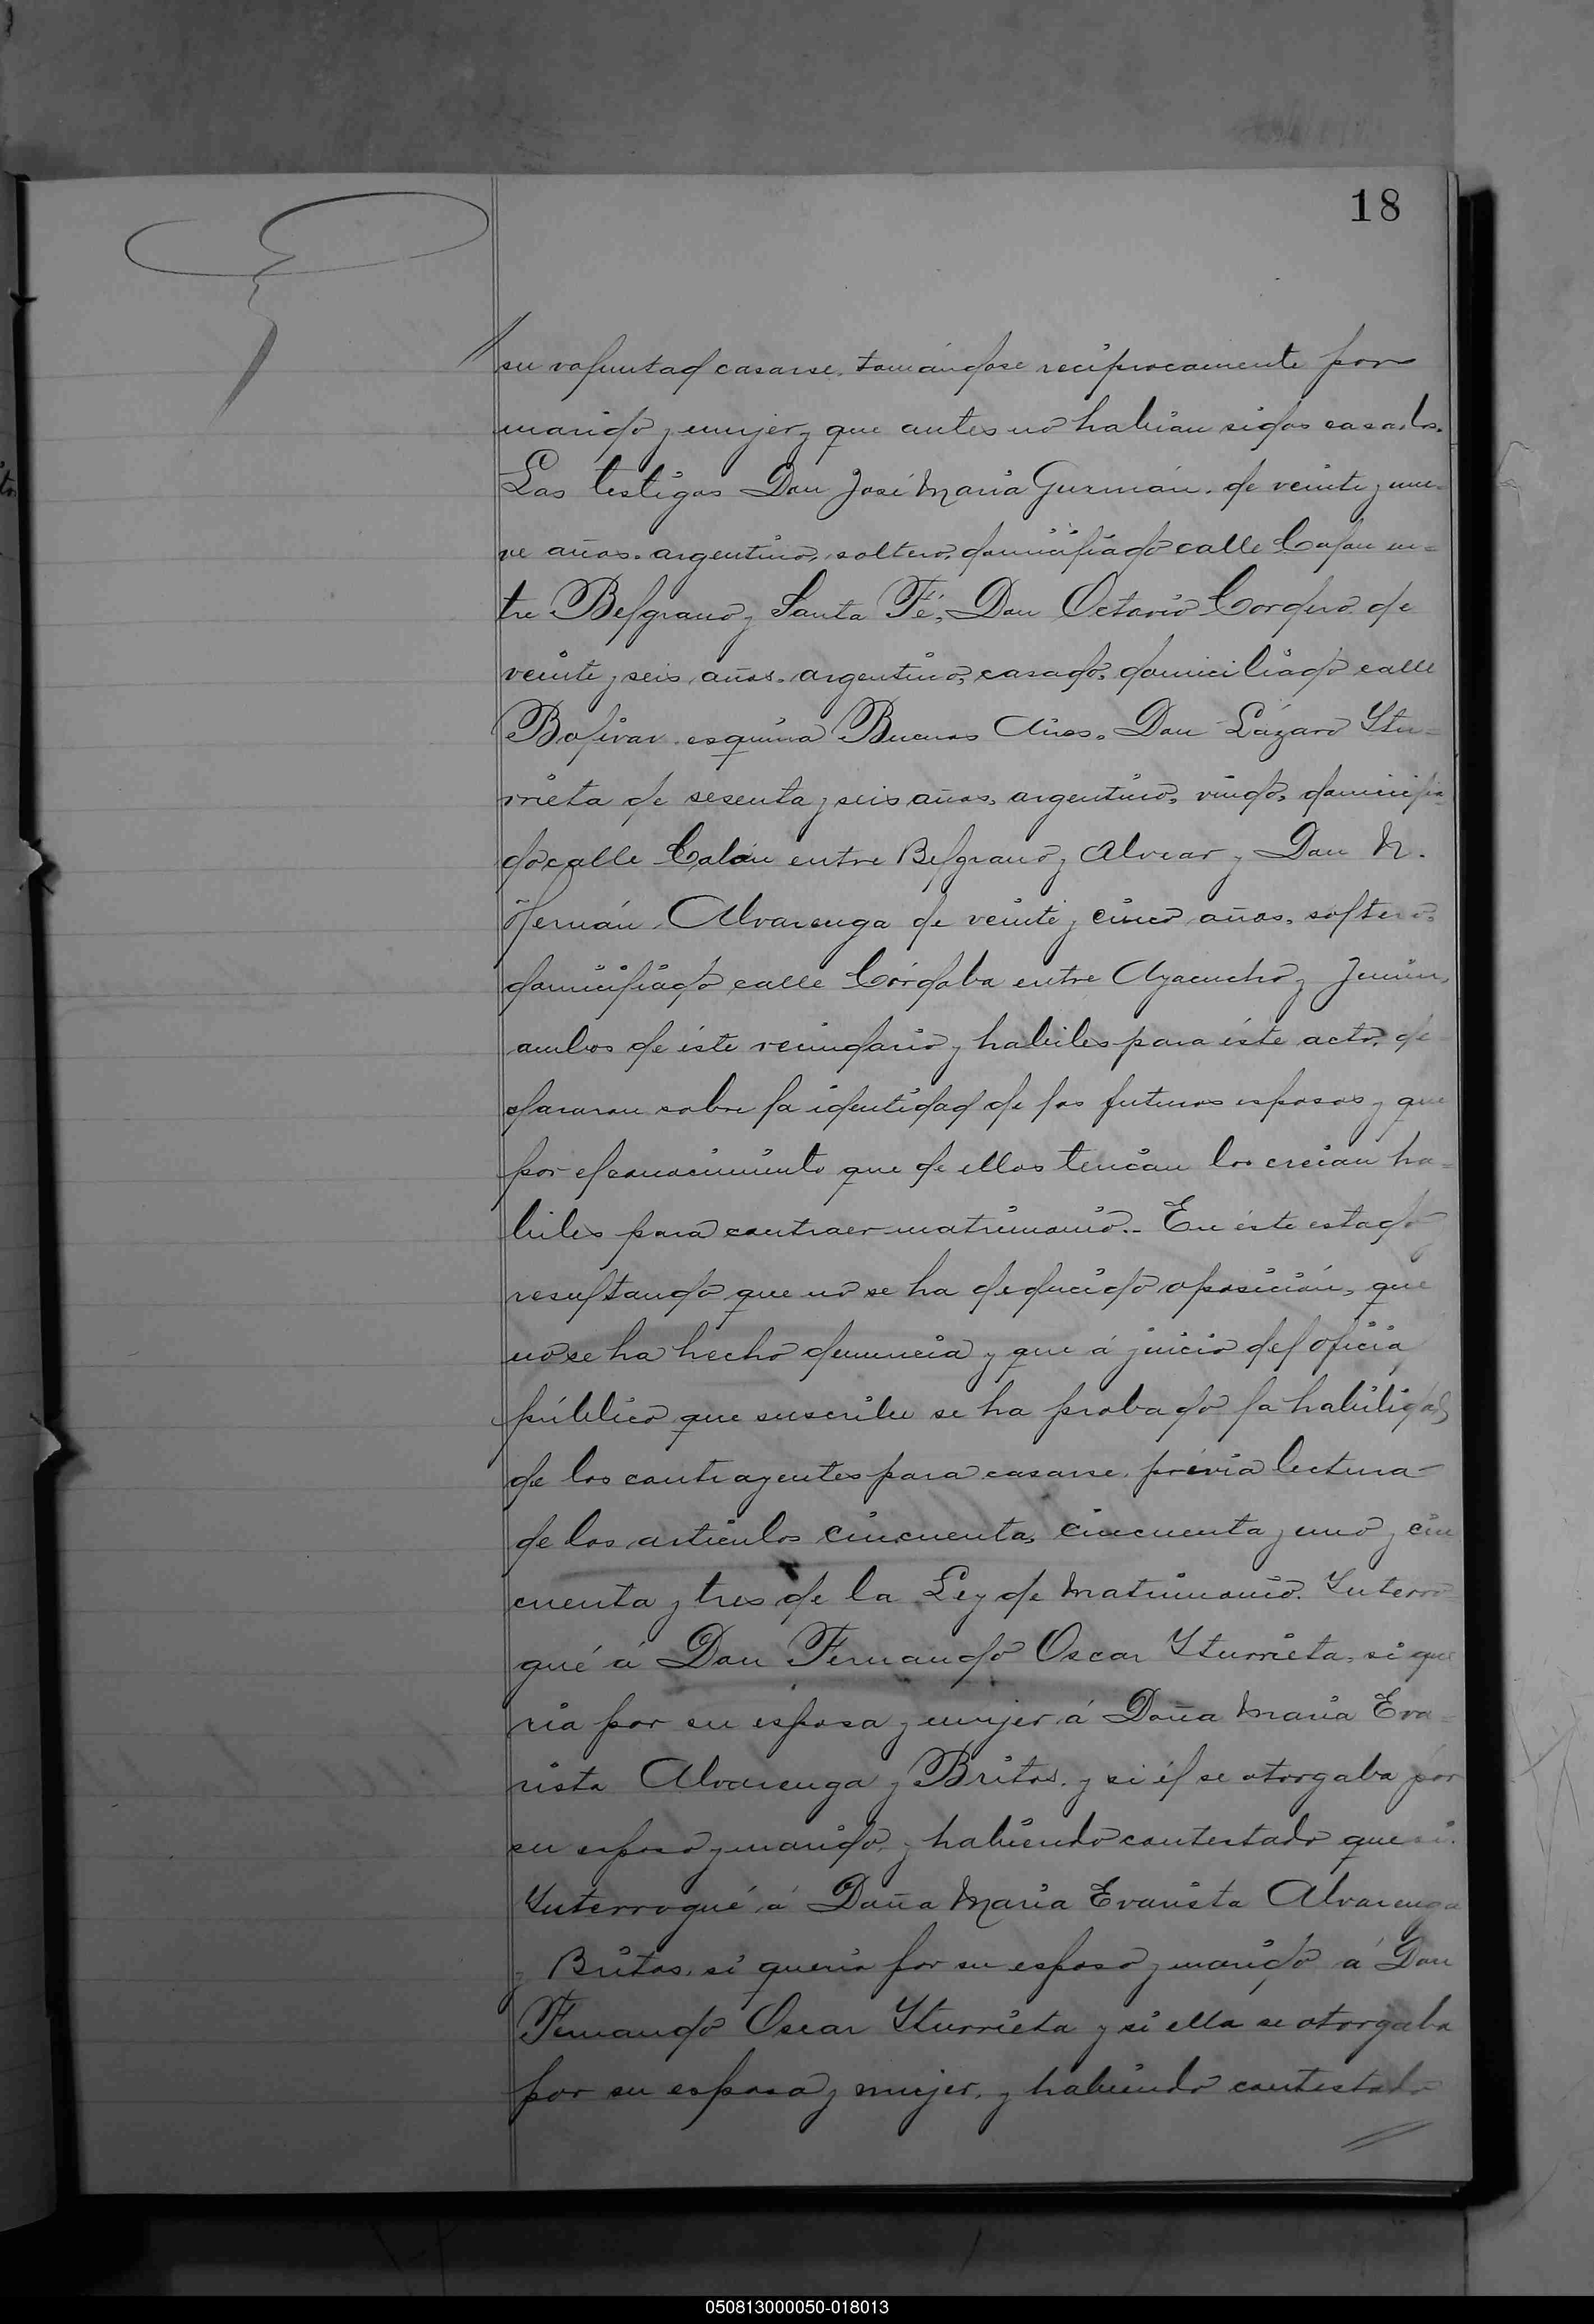 18
su voluntad casarse, tomándose recíprocamente por
marido y mujer y que antes no habían sidos casados.
Los testigos Don José María Guzmán, de veinte y nue-
ve años, argentino, soltero, domiciliado calle Colon en=
tre Belgrano y Santa Fé, Don Octavio Cordero de
veinte y seis años, argentino, casado, domiciliado calle
Bolívar esquina Buenos Aires, Don Lázaro Ytu=
rrieta de sesenta y seis años, argentino, viudo, domicilia
do calle Colon entre Belgrano y Alvear y Don N.
Hernán Alvarenga de veinte y cinco años, soltero,
domiciliado calle Córdoba entre Ayacucho y Junin,
ambos de éste vecindario y habiles para éste acto, de
clararon sobre la identidad de los futuros esposos y que
por el conocimiento que de ellos tenían los creían ha=
biles para contraer matrimonio.- En éste estado
resultando que no se ha deducido oposición, que
no se ha hecho denuncia y que á juicio del oficial
público que suscribe se ha probado la habilidad
de los contrayentes para casarse, prévia lectura
de los artículos cincuenta, cincuenta y uno y cin
cuenta y tres de la Ley de Matrimonio. Ynterro
gué á Don Fernando Oscar Yturrieta, si que
ria por su esposa y mujer á Doña María Eva=
rista Alvarenga y Britos, y si él se otorgaba por
su esposo y marido, y habiendo contestado que si.
Ynterrogué á Doña María Evarista Alvarenga
y Britos, si quería por su esposo y marido á Don
Fernando Oscar Yturrieta y si ella se otorgaba
por su esposa y mujer, y habiendo contestado
050813000050-018013